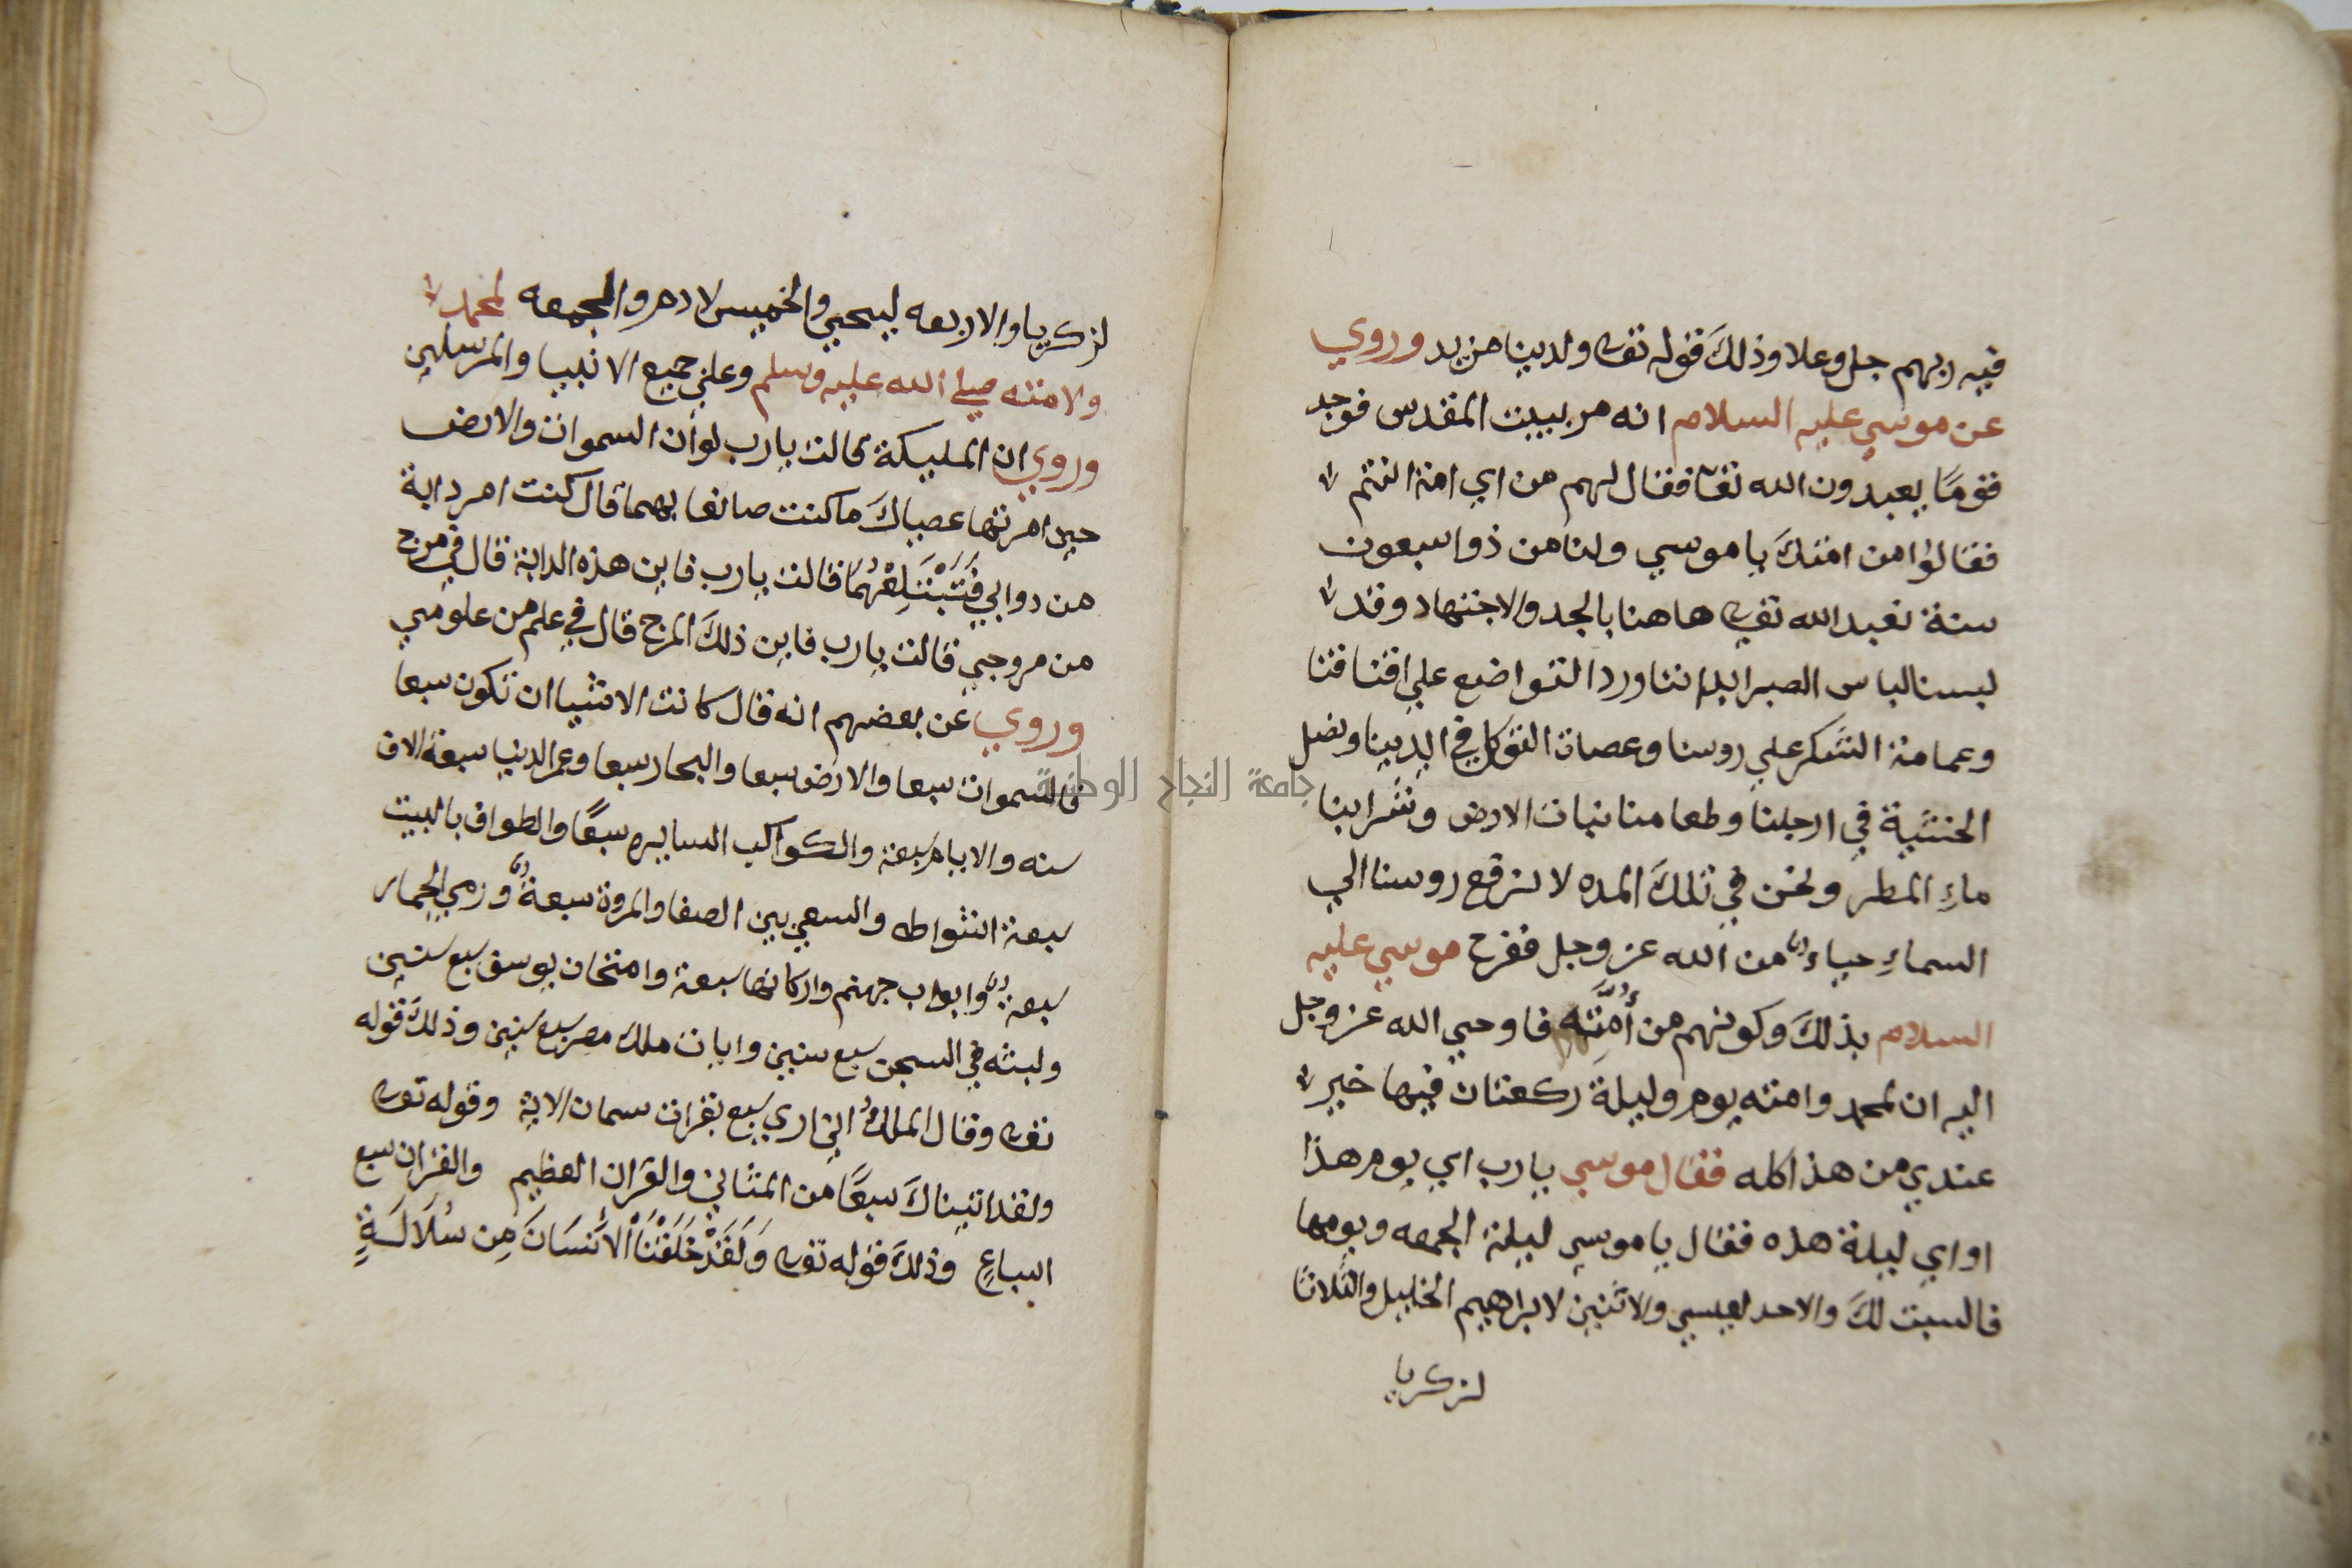 فيه ربهم جل وعلا وذلك قوله تعالى ولدينا مزيد وروي
عن موسي عليه السلام انه مر ببيت المقدس فوجد
قومًا يعبدون الله تعا فقال لهم من اي امة انتم
فقالوا من امتك يا موسي ولنا من ذو اسبعون
سنة نعبد الله تعالى هاهنا بالجد والاجتهاد وقد
لبسنا لباس الصبر ابداننا وردا التواضع علي اقتاقنا
وعمامة الشكر علي روسنا وعصاة التوكل في ايدينا ونعل
الخشية في ارجلنا وطعامنا نبات الارض وشرابنا
ماء المطر ونحن في تلك المده لا نرفع روسنا الي
السماء حياء من الله عز وجل ففرح موسي عليه
السلام بذلك وكونهم من أُمَّتِه فاوحي الله عز وجل
اليه ان لمحمد وامته يوم وليلة ركعتان فيها خير
عندي من هذا كله فقال موسي يارب اي يوم هذا
او اي ليلة هذه فقال يا موسي ليلة الجمعه ويومها
فالسبت لك والاحد لعيسي والاثنين لابراهيم الخليل والثلاثا
لزكريا
لزكريا والاربعه ليحيي والخميس لادم والجمعه لمحمد
ولامته صلي الله عليه وسلم وعلي جميع الانبيا والمرسلين
وروي ان المليكة قالت يارب لو أن السموات والارض
حين امرتها عصياك ما كنت صانعا بهما قال كنت امر دابة
من دوابي فَتَبْتَلِعْهُمَا قالت يارب فاين هذه الدابة قال في مرج
من مروجي قالت يارب فاين ذلك المرج قال في علم من علومي
وروي عن بعضهم انه قال كانت الاشيا ان تكون سبعا
فالسموات سبعا والارض سبعا والبحار سبعا وعمر الدنيا سبعة الاف
سنه والايام سبعة والكواكب السايره سبعًا والطواف بالبيت
سبعة اشواط والسعي بين الصفا والمروة سبعة ورمي الجمار
سبعة وابواب جهنم واركانها سبعة وامتحان يوسف سبع سنين
ولبثه في السجن سبع سنين وايات ملك مصر سبع سنين وذلك قوله
تعالى وقال الملكُ اني اري سبع بقرات سمان الاية وقوله تعالى
ولقد اتيناك سبعًا من المثاني والقران العظيم والقران سبع
اسباعٍ وذلك قوله تعالى وَلَقَدْ خَلَقْنَا الاِنسَانَ مِن سُلَالَةٍ
جامعة النجاح الوطنية